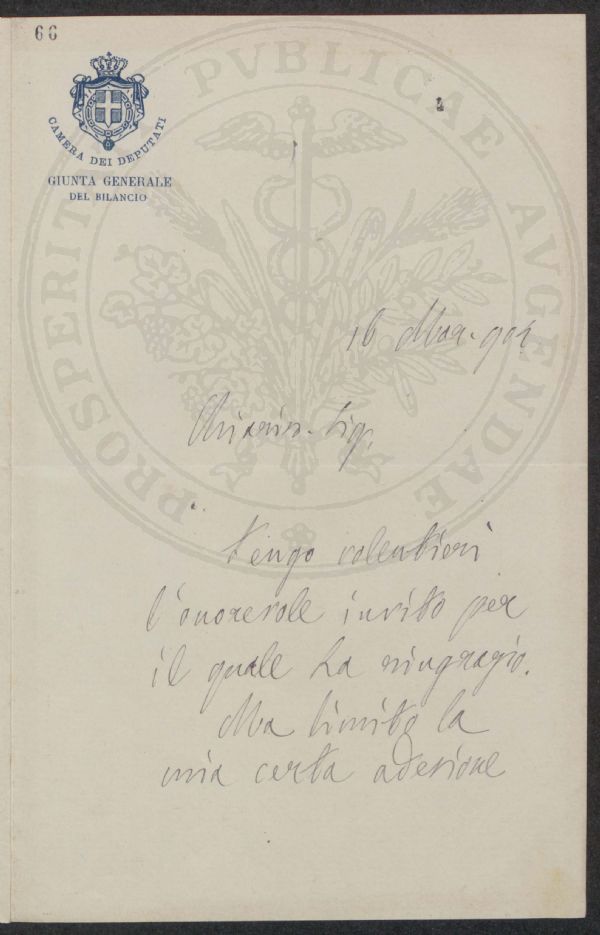 66
CAMERA DEI DEPUTATI
GIUNTA GENERALE
DEL BILANCIO
PROSPERITATI PVBLICAE AVGENDAE
16 Mar. 904
Chiariss. Sig.
Tengo volentieri
l'onorevole invito per
il quale La ringrazio.
Ma limito la
mia certa adesione